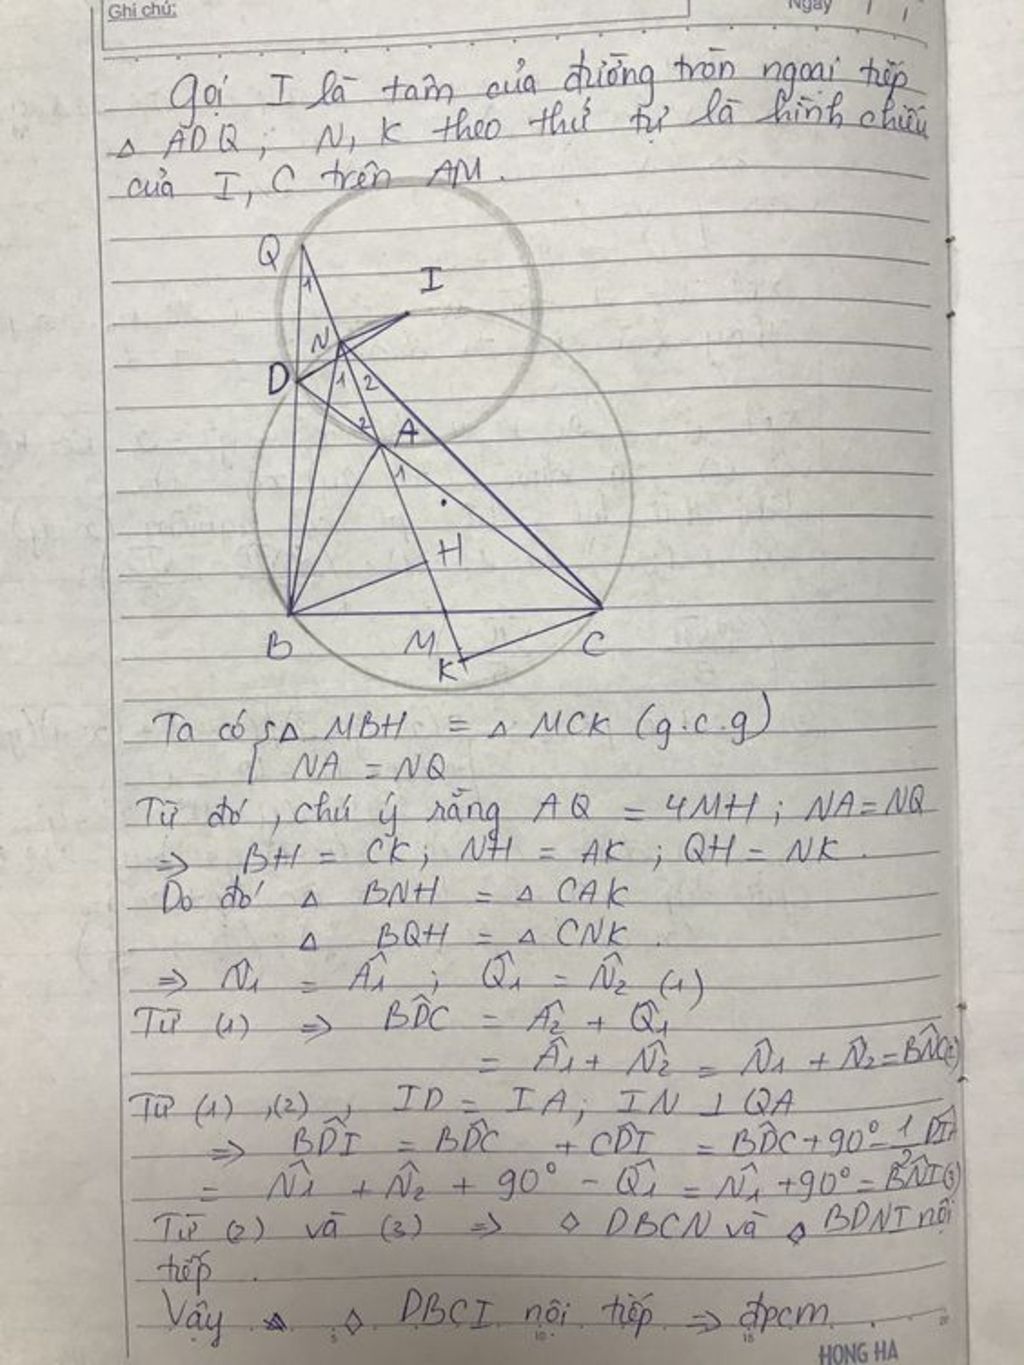 Ghi chú:
Ngày
Gọi I là tâm của đường tròn ngoại tiếp
△ ADQ ; N, K theo thứ tự là hình chiếu
của I, C trên AM.
Q
1
I
N
D
1 2
2 A
1
H
B M C
K
Ta có { △ MBH = △ MCK (g.c.g)
NA = NQ
Từ đó, chú ý rằng AQ = 4MH ; NA = NQ
=> BH = CK ; NH = AK ; QH = NK .
Do đó △ BNH = △ CAK
△ BQH = △ CNK .
=> N̂1 = Â1 ; Q̂1 = N̂2 (1)
Từ (1) => BD̂C = Â2 + Q̂1
= Â1 + N̂2 = N̂1 + N̂2 = BN̂C(2)
Từ (1) ,(2) , ID = IA ; IN ⊥ QA
=> BD̂I = BD̂C + CD̂I = BD̂C + 90° - 1/2 DÎA
= N̂1 + N̂2 + 90° - Q̂1 = N̂1 + 90° = BN̂I(3)
Từ (2) và (3) => ◇ DBCN và ◇ BDNI nội
tiếp .
Vậy ◇ DBCI nội tiếp => đpcm
5 10 15 20
HONG HA